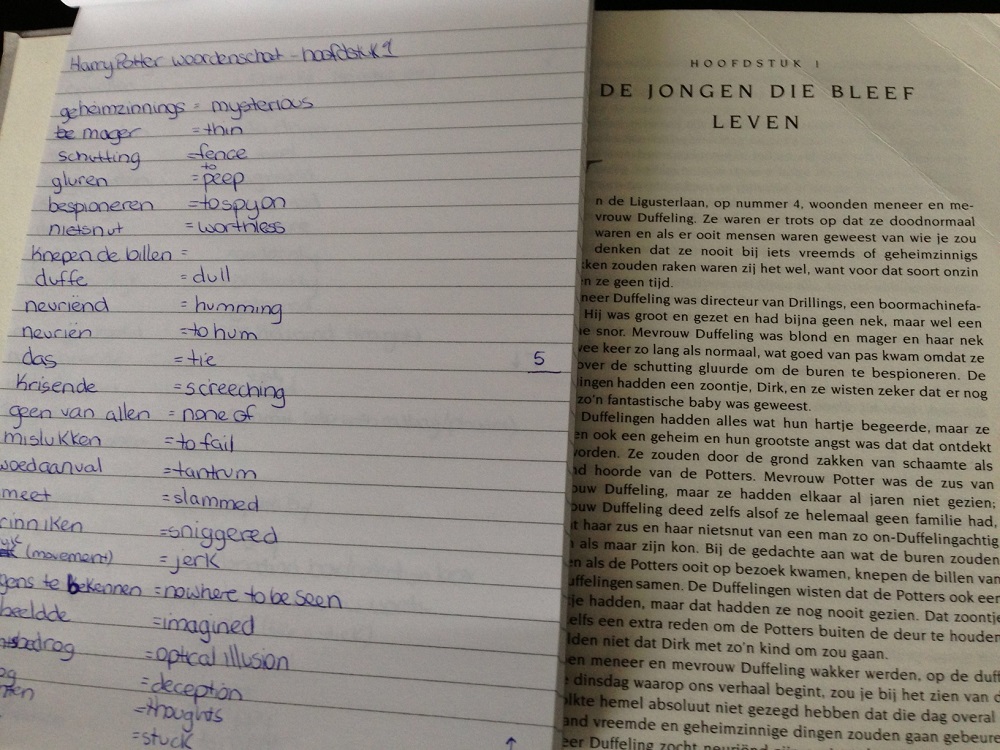 Harry Potter woordenschat - hoofdstuk 1
geheimzinnings = mysterious
mager = thin
schutting = fence
gluren = to peep
bespioneren = to spy on
nietsnut = worthless
knepen de billen =
duffe = dull
neuriënd = humming
neuriën = to hum
das = tie
5
Krisende = screeching
geen van allen = none of
mislukken = to fail
woedaanval = tantrum
meet = slammed
rinniken = sniggered
(movement) = jerk
gens te bekennen = nowhere to be seen
beeldde = imagined
bedrog = optical illusion
og = deception
= thoughts
= stuck
HOOFDSTUK 1
DE JONGEN DIE BLEEF
LEVEN
n de Ligusterlaan, op nummer 4, woonden meneer en me-
vrouw Duffeling. Ze waren er trots op dat ze doodnormaal
waren en als er ooit mensen waren geweest van wie je zou
denken dat ze nooit bij iets vreemds of geheimzinnigs
ken zouden raken waren zij het wel, want voor dat soort onzin
n ze geen tijd.
neer Duffeling was directeur van Drillings, een boormachinefa-
Hij was groot en gezet en had bijna geen nek, maar wel een
e snor. Mevrouw Duffeling was blond en mager en haar nek
vee keer zo lang als normaal, wat goed van pas kwam omdat ze
over de schutting gluurde om de buren te bespioneren. De
lingen hadden een zoontje, Dirk, en ze wisten zeker dat er nog
zo'n fantastische baby was geweest.
Duffelingen hadden alles wat hun hartje begeerde, maar ze
en ook een geheim en hun grootste angst was dat dat ontdekt
worden. Ze zouden door de grond zakken van schaamte als
nd hoorde van de Potters. Mevrouw Potter was de zus van
ouw Duffeling, maar ze hadden elkaar al jaren niet gezien;
ouw Duffeling deed zelfs alsof ze helemaal geen familie had,
t haar zus en haar nietsnut van een man zo on-Duffelingachtig
als maar zijn kon. Bij de gedachte aan wat de buren zouden
en als de Potters ooit op bezoek kwamen, knepen de billen van
uffelingen samen. De Duffelingen wisten dat de Potters ook een
je hadden, maar dat hadden ze nog nooit gezien. Dat zoontje
elfs een extra reden om de Potters buiten de deur te houden
lden niet dat Dirk met zo'n kind om zou gaan.
en meneer en mevrouw Duffeling wakker werden, op de duff
dinsdag waarop ons verhaal begint, zou je bij het zien van d
olkte hemel absoluut niet gezegd hebben dat die dag overal
and vreemde en geheimzinnige dingen zouden gaan gebeure
eer Duffeling zocht neuriënd